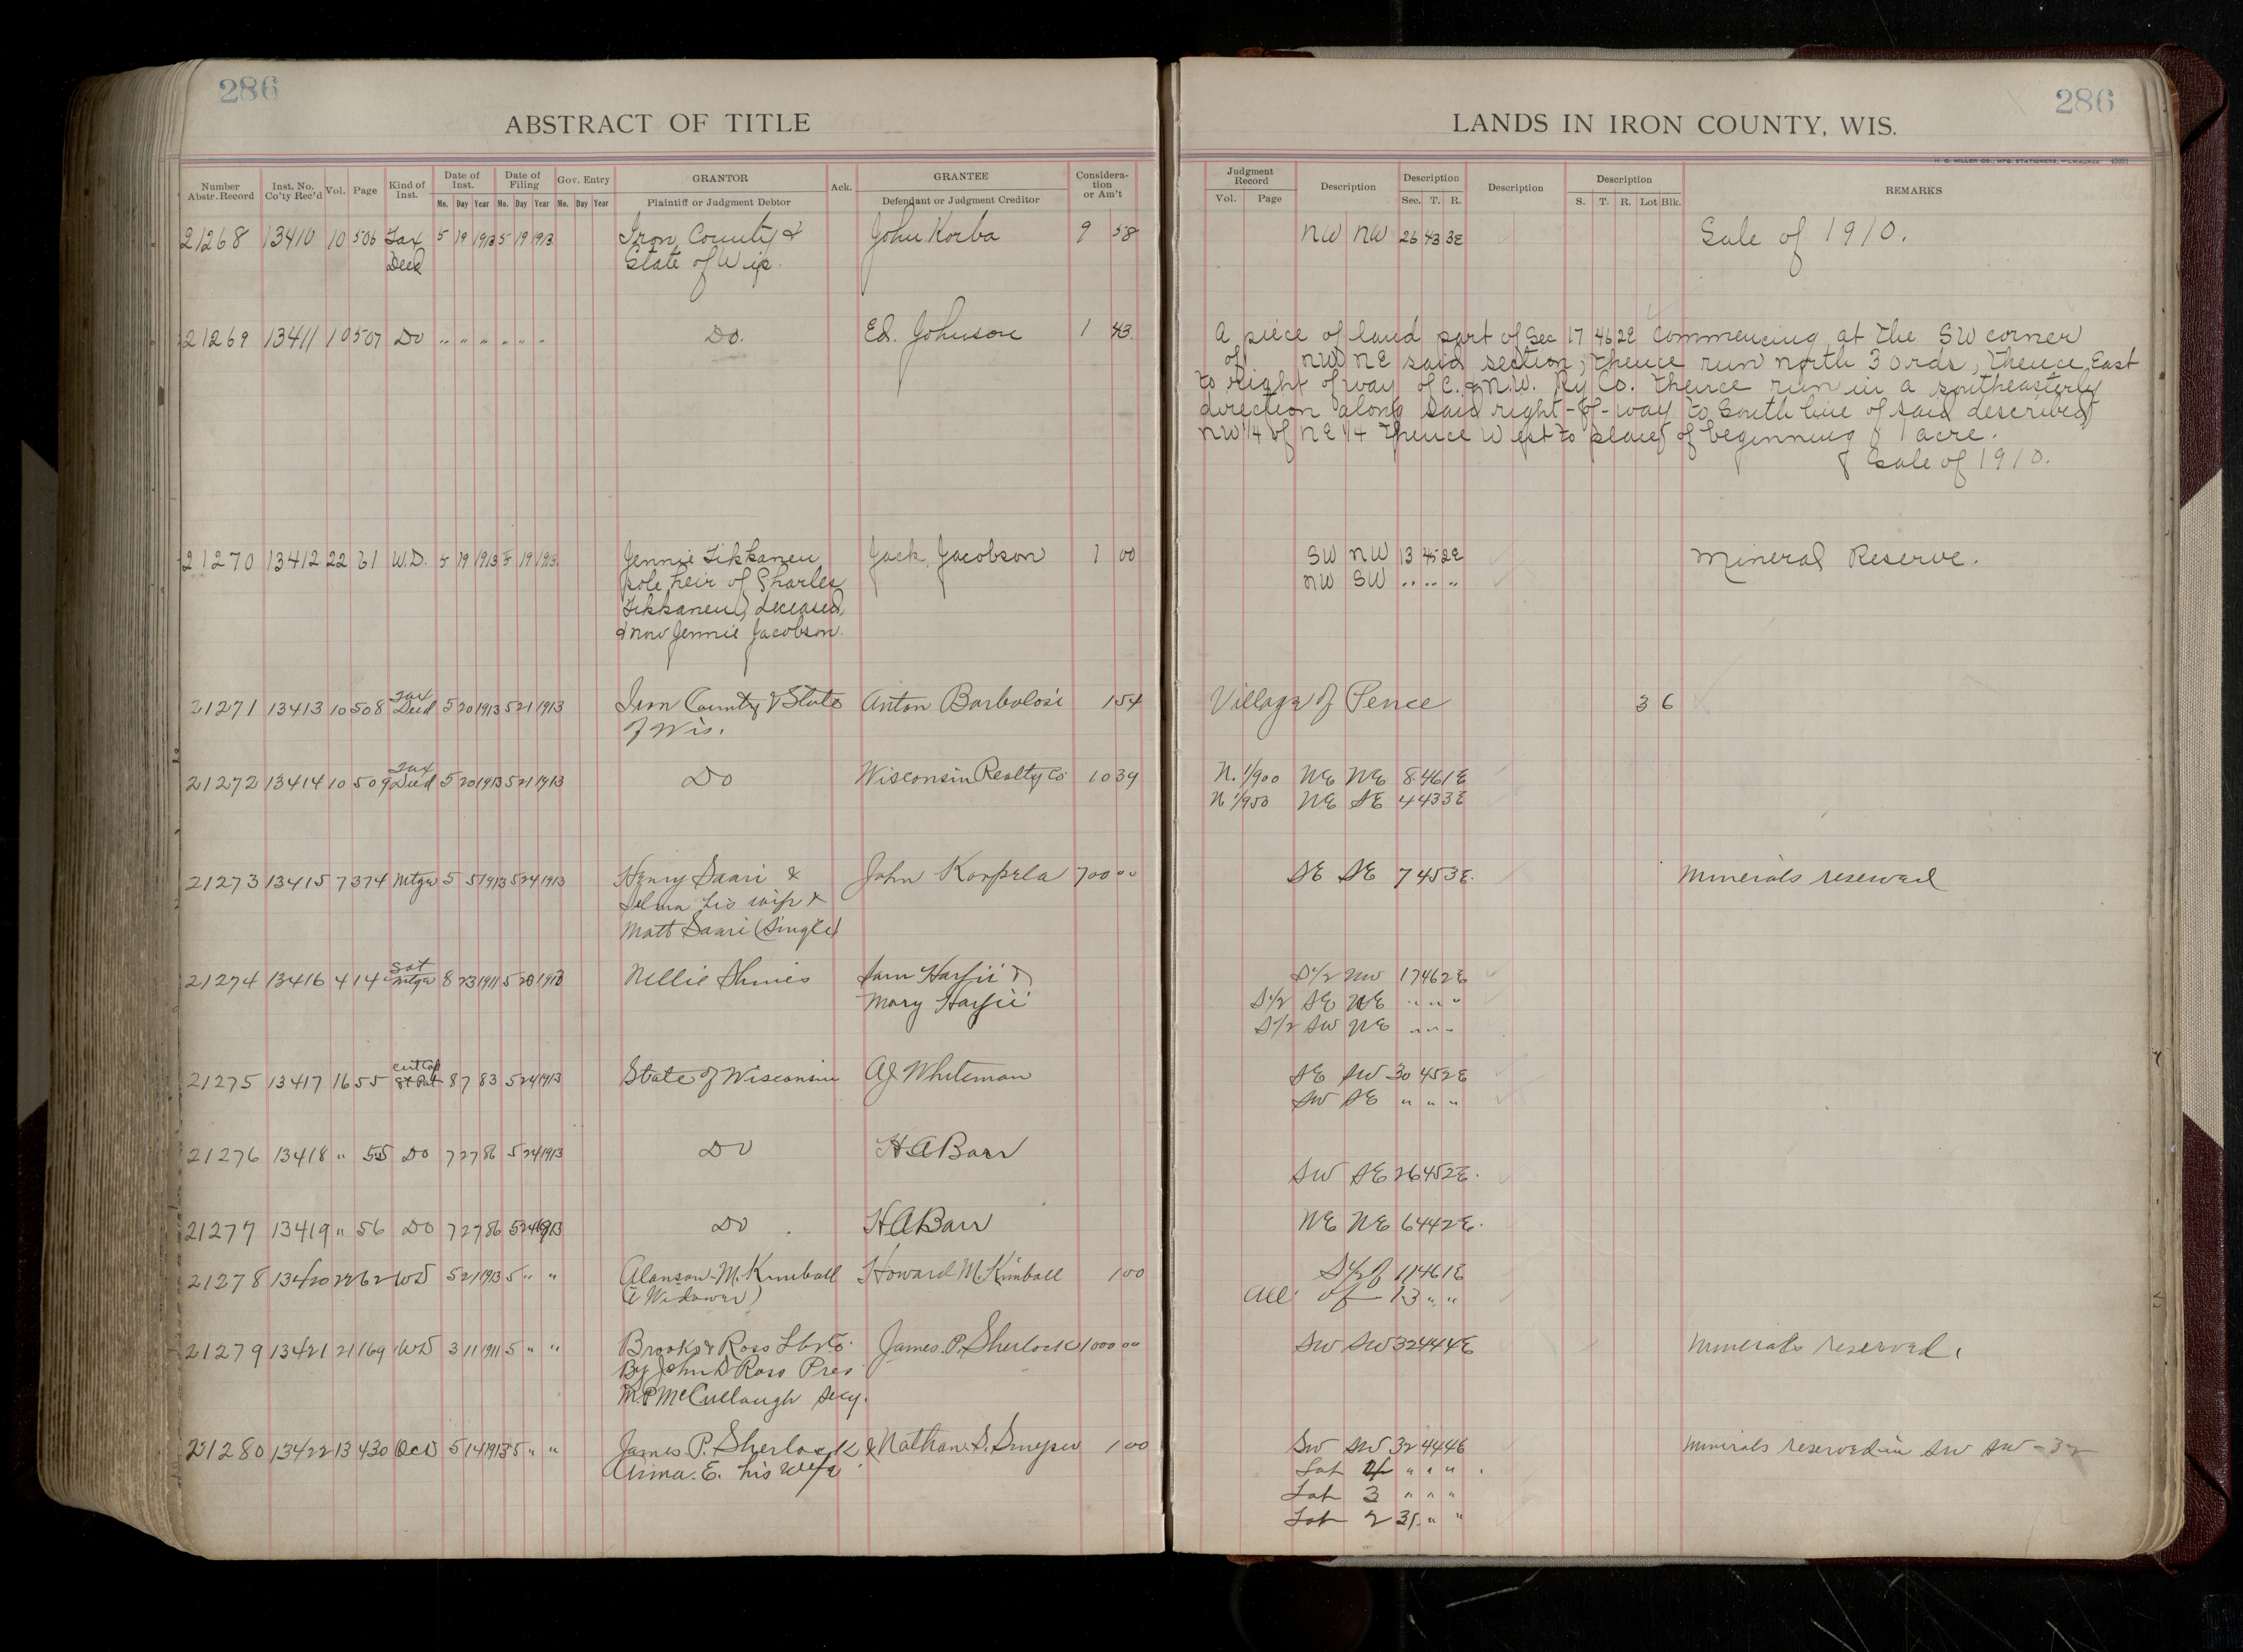 286
286
ABSTRACT OF TITLE
LANDS IN IRON COUNTY, WIS.
H. G. MILLER CO., MFG. STATIONERS, MILWAUKEE
Number Abstr. Record Inst. No. Co'ty Rec'd Vol. Page Kind of Inst. Date of Inst. Mo. Day Year Date of Filing Mo. Day Year Gov. Entry Mo. Day Year GRANTOR Plaintiff or Judgment Debtor Ack. GRANTEE Defendant or Judgment Creditor Consideration or Am't
Judgment Record Vol. Page Description Description Sec. T. R. Description Description S. T. R. Lot Blk. REMARKS
21268 13410 10 506 Tax 5 19 1913 5 19 1913 Iron County & John Korba 9 58 NW NW 26 43 3E Sale of 1910.
Deed State of Wis.
21269 13411 10 507 Do " " " " " " Do. Ed. Johnson 1 43 A piece of land part of Sec 17 46 2E commencing at the SW corner
of NW NE said section, thence run north 3 ords, thence East
to right of way of C. & N.W. Ry Co. thence run in a southeasterly
direction along said right-of-way to South line of said described
NW 1/4 of NE 1/4 thence West to place of beginning 1 acre.
Sale of 1910.
21270 13412 22 61 W.D. 5 19 1913 5 19 1913 Jennie Tikkanen Jack Jacobson 1 00 SW NW 13 45 2E Mineral Reserve.
sole heir of Charles NW SW " " "
Tikkanen, deceased,
& now Jennie Jacobson.
21271 13413 10 508 Tax Deed 5 20 1913 5 21 1913 Iron County & State Anton Barbolosi 1 54 Village of Pence 3 6
of Wis.
21272 13414 10 509 Tax Deed 5 20 1913 5 21 1913 Do Wisconsin Realty Co 10 39 N. 1/900 NE NE 8 46 1E
N 1/950 NE SE 4 43 3E
21273 13415 7 374 Mtge 5 5 1913 5 24 1913 Henry Saari & John Korpela 700 00 SE SE 7 45 3E. Minerals reserved
Selma his wife &
Matt Saari (Single)
21274 13416 4 14 Sat Mtge 8 23 1911 5 1913 Nellie Sam & S 1/2 NW 17 46 2E
Mary S 1/2 SE NE " " "
S 1/2 SW NE " " "
21275 13417 16 55 Cert Cop St Pat 8 7 83 5 24 1913 State of Wisconsin AJ Whiteman SE SW 30 45 2E
SW SE " " "
21276 13418 " 55 Do 7 27 86 5 24 1913 Do H A Barr
SW SE 26 45 2E.
21277 13419 " 56 Do 7 27 86 5 24 1913 Do H A Barr NE NE 6 44 2E.
21278 13420 22 62 WD 5 21 1913 5 " " Alanson M. Kimball Howard M. Kimball 1 00 S 1/2 of 11 46 1E
(a Widower) All of 13 " "
21279 13421 21 169 WD 3 11 1911 5 " " Brooks & Ross Lbr Co. James P. Sherlock 1000 00 SW SW 32 44 4E Minerals reserved.
By John D Ross Pres
M.P McCullough Secy.
21280 13422 13 430 QCD 5 14 1913 5 " " James P. Sherlock & Nathan S. 1 00 SW SW 32 44 4E Minerals reserved in SW SW - 32
Anna. E. his wife Lot " " "
Lot 3 " " "
Lot 2 31 " "